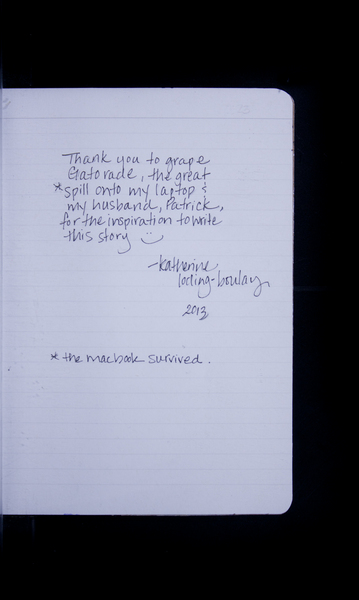 Thank you to grape
Gatorade, the great
*spill onto my laptop &
my husband, Patrick,
for the inspiration to write
this story
-katherine
2013
* the macbook survived.